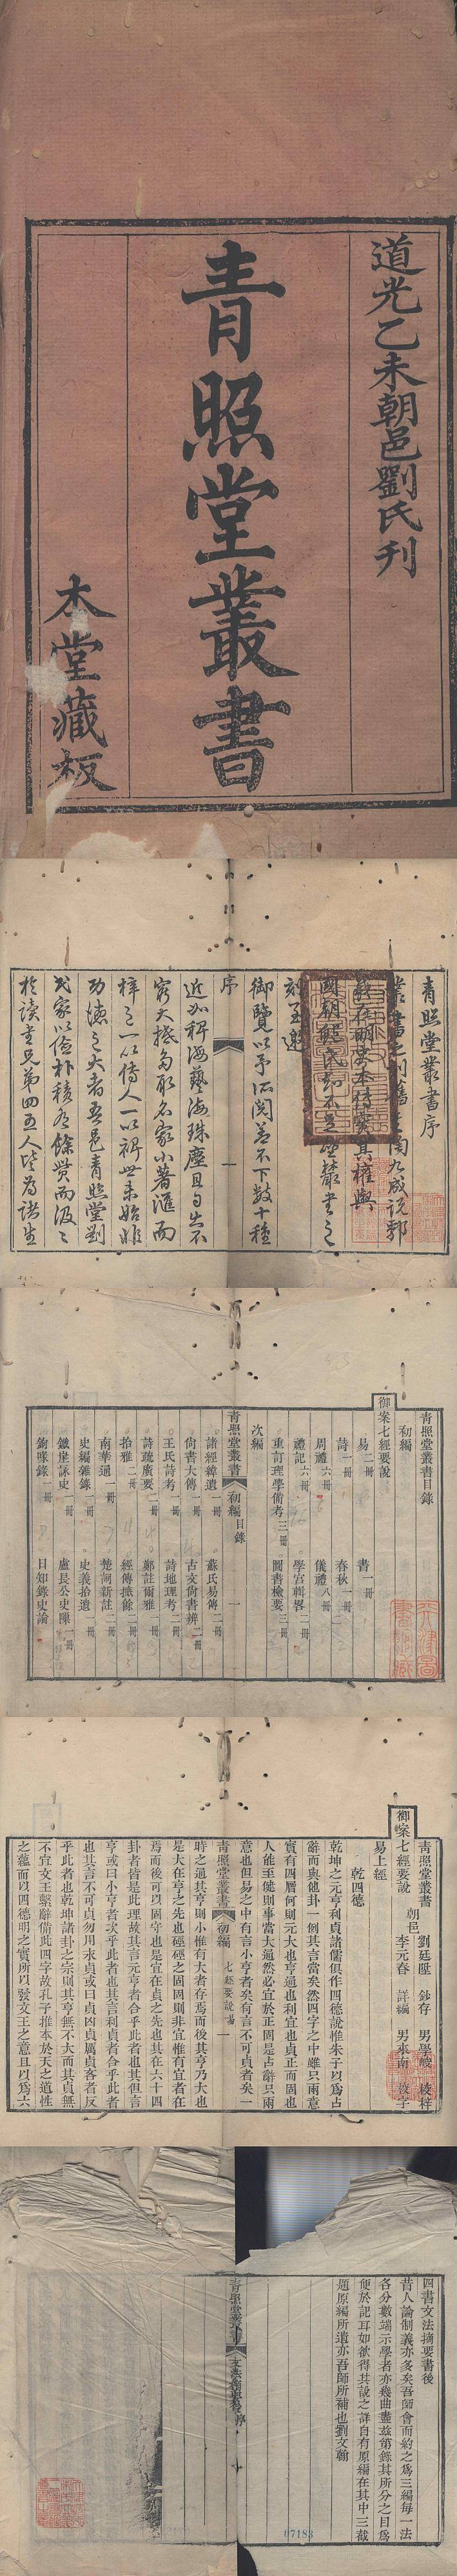 道光乙未朝邑劉氏刊
青照堂叢書
本堂藏板
青照堂叢書序
叢書之刻舊矣陶九成說郛
御覽以予所閱蓋不下數十種
序
一
近如稗海藝海珠塵且
窮大抵多取名家小著滙而
梓之一以傳人一以裨世未始非
功德之大者吾邑青照堂劉
氏家以儉朴積有餘貲而汲汲
於讀書兄弟四五人皆為諸生
青照堂叢書目錄
初編
御案七經要說
易二冊 書一冊
詩一冊 春秋一冊
周禮二冊 儀禮八冊
禮記六冊 學宮輯畧二冊
重訂理學備考三冊 圖書檢要三冊
次編
青照堂叢書 初編目錄 一
諸經緯遺一冊 蘇氏易傳二冊
尙書大傳一冊 古文尙書辨二冊
王氏詩考一冊 詩地理考二冊
詩疏廣要二冊 鄭註爾雅一冊
拾雅二冊 經傳摭餘二冊
南華通一冊 楚詞新註二冊
史編雜錄一冊 史義拾遺一冊
鐵崖詠史一冊 盧艮公史隙一冊
銷喙錄一冊 日知錄史論
青照堂叢書
御案七經要說
朝邑 劉廷陞 鈔存 男學
李元春 詳編 男來南
易上經
乾四德
乾坤之元亨利貞諸儒俱作四德說惟朱子以爲占
辭而與他卦一例其言當矣然四字之中雖只兩意
實有四層何則元大也亨通也利宜也貞正而固也
人能至健則事當大通然必宜於正固是占辭只兩
意也但易之中有言小亨者矣有言不可貞者矣一
青照堂叢書 初編 七經要說易 一
時之通其亨則小惟有大者存焉而後其亨乃大也
是大在亨之先也硜硜之固固則非宜惟有宜者在
焉而後可以固守也是宜在貞之先也其在六十四
卦者皆是此理故其言元亨者合乎此者也其但言
亨或曰小亨者次乎此者也其言利貞者合乎此者
也其言不可貞勿用永貞或曰貞凶貞厲貞吝者反
乎此者也乾坤諸卦之宗則其亨無不大而其貞無
不宜文王繫辭備此四字故孔子推本於天之道性
之蘊而以四德明之實所以發文王之意且以爲六
四書文法摘要書後
昔人論制義亦多矣吾師會而約之爲三編每一法
各分數端示學者亦幾曲盡茲第錄其所分之目爲
便於記耳如欲得其說之詳自有原編在其中三截
題原編所遺亦吾師所補也劉文翰
青照堂叢書
07183